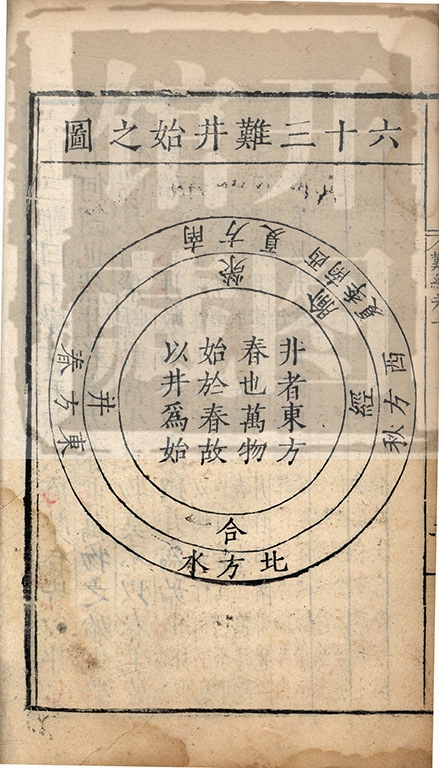 六十三難井始之圖
南方夏
榮
西南季夏
腧
西方秋
經
北方水
合
東方春
井
井者東方
春也萬物
始於春故
以井爲始